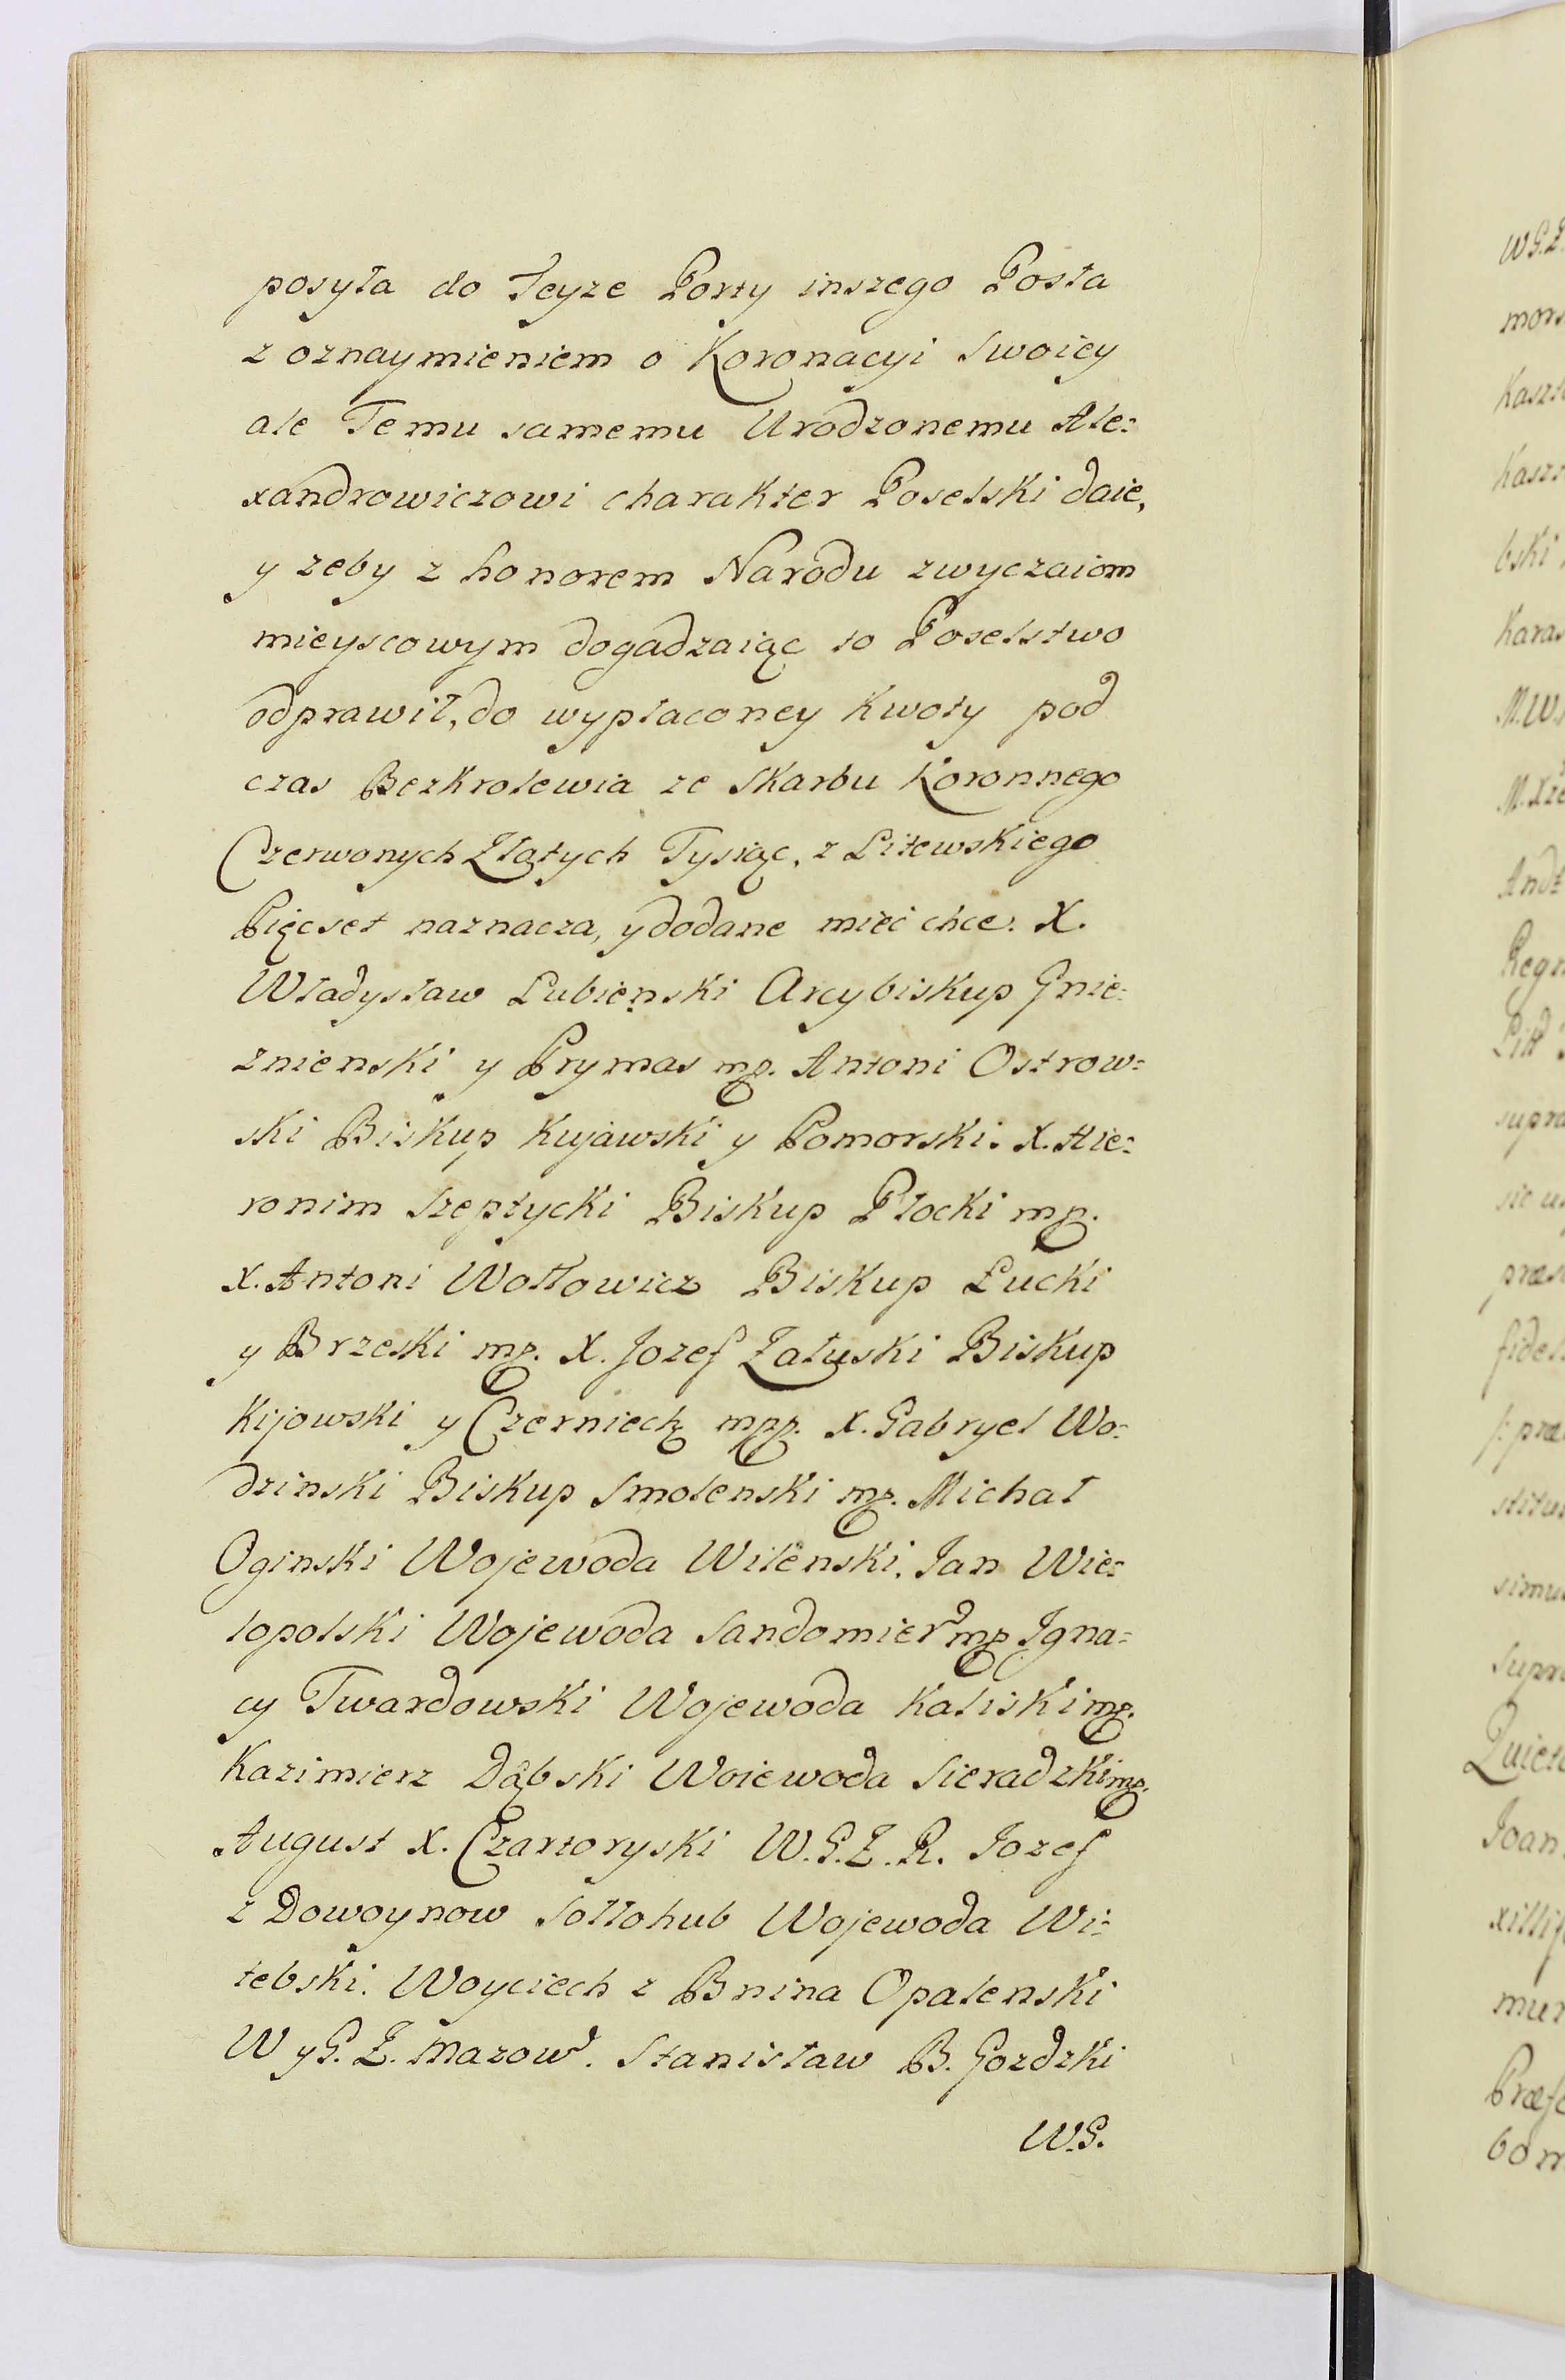 posyła do Teyze Porty inszego Posła
z oznaymieniem o Koronacyi Swoiey
ale Temu samemu Urodzonemu Ale:
xandrowiczowi charakter Poselski daie,
y zeby z honorem Narodu zwyczaiom
mieyscowym dogadzaiąc to Poselstwo
odprawił, do wypłaconey Kwoty pod
czas Bezkrolewia ze Skarbu Koronnego
Czerwonych Złotych Tysiąc, z Litewskiego
Pięcset naznacza, y dodane mieć chce. X.
Władysław Lubieński Arcybiskup Gnie:
znienski y Prymas mp. Antoni Ostrow:
ski Biskup Kujawski y Pomorski. X. Hie:
ronim Szeptycki Biskup Płocki mp.
X. Antoni Wołłowicz Biskup Łucki
y Brzeski mp. X. Jozef Załuski Biskup
Kijowski y Czerniech mpp. X. Gabryel Wo:
dzinski Biskup Smolenski mp. Michał
Oginski Wojewoda Wilenski. Jan Wie:
lopolski Wojewoda Sandomier mp Igna:
cy Twardowski Wojewoda Kaliski mp.
Kazimierz Dąbski Woiewoda Sieradzki mp.
August X. Czartoryski W.G.Z.R. Jozef
z Dowoynow Sołłohub Wojewoda Wi:
tebski. Woyciech z Bnina Opalenski
W y G. Z. Mazow. Stanisław B. Gozdzki
W.G.
W G. Z
mors
Kaszt
Kaszt
bski
Karas
M. W.
M. Xze
Andr
Regn
Lit
supra
sic u
præs
fidel
præ
stitu
simus
supra
Quiet
Joan
xillif
mur
Præf
bom